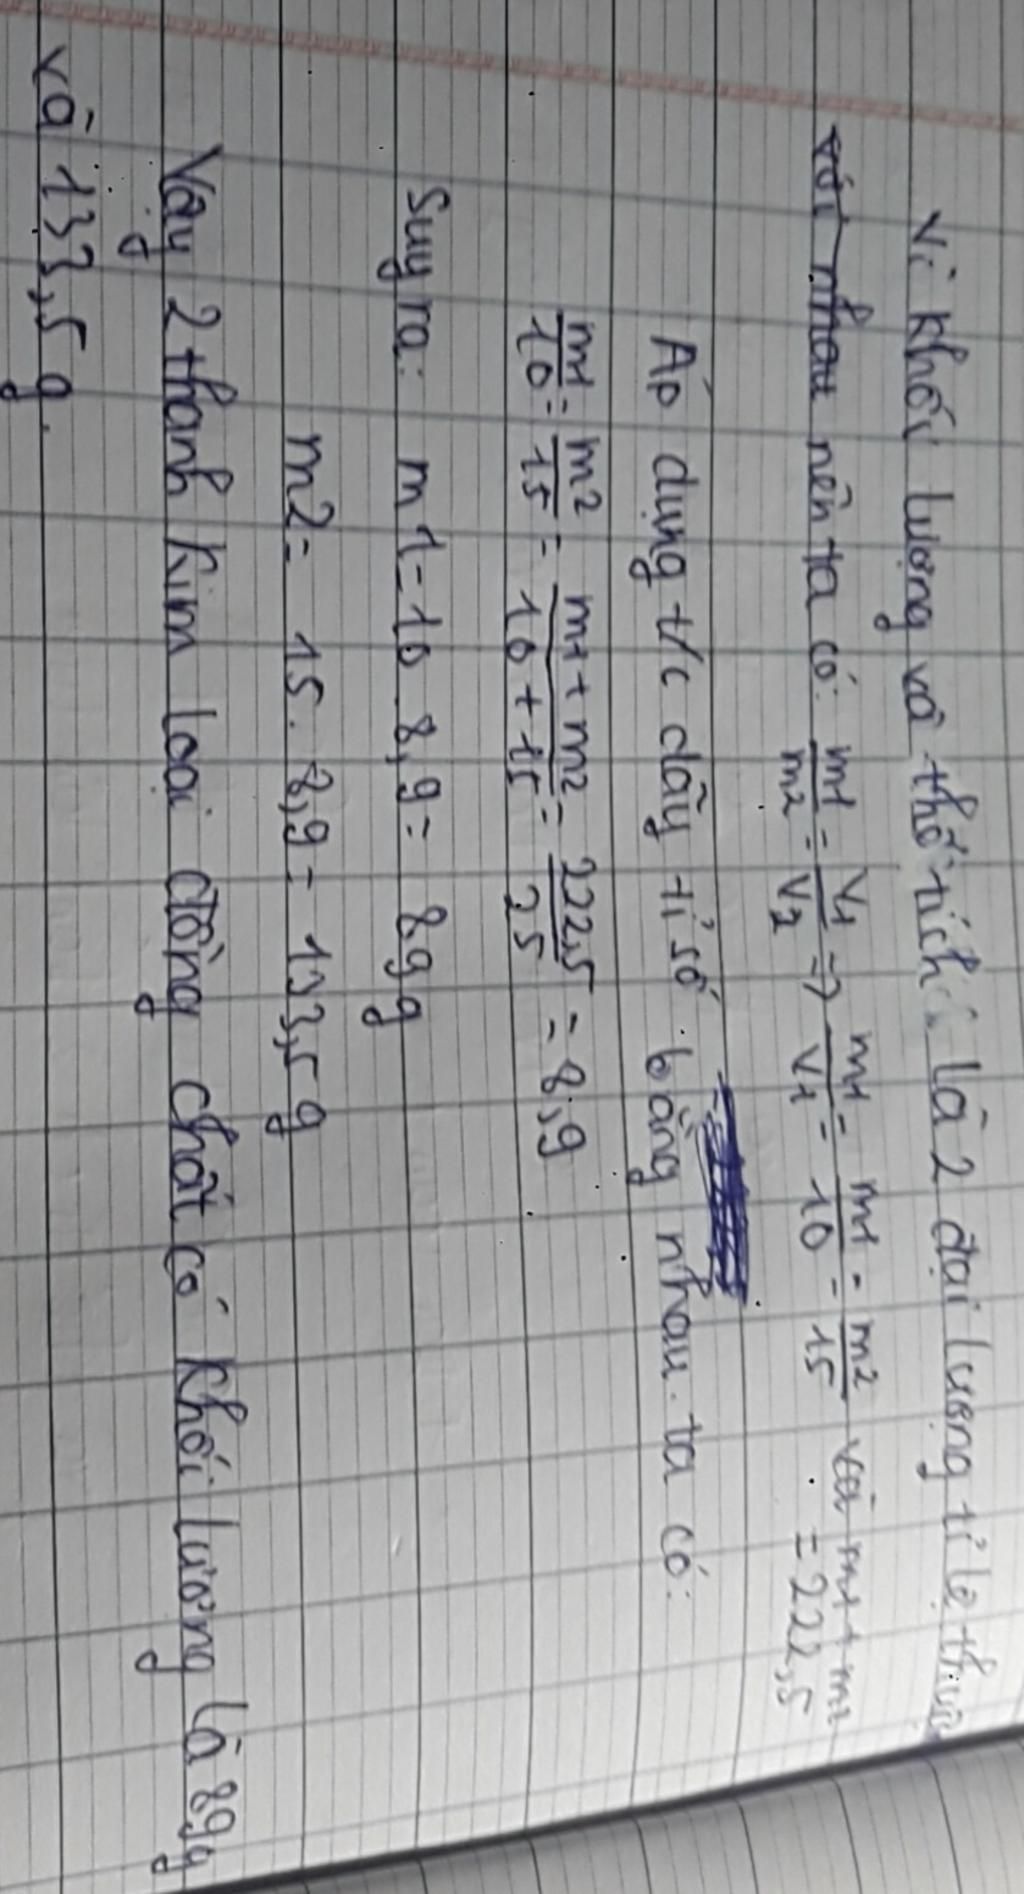 Vì khối lượng và thể tích là 2 đại lượng tỉ lệ thuận
với nhau nên ta có: m1/m2 = V1/V2 => m1/V1 = m1/10 = m2/15 và m1 + m2
= 222,5
Áp dụng t/c dãy tỉ số bằng nhau ta có:
m1/10 = m2/15 = m1 + m2/10 + 15 = 222,5/25 = 8,9
Suy ra: m1 = 10 . 8,9 = 89 g
m2 = 15 . 8,9 = 133,5 g
Vậy 2 thanh kim loại đồng chất có khối lượng là 89g
và 133,5 g.